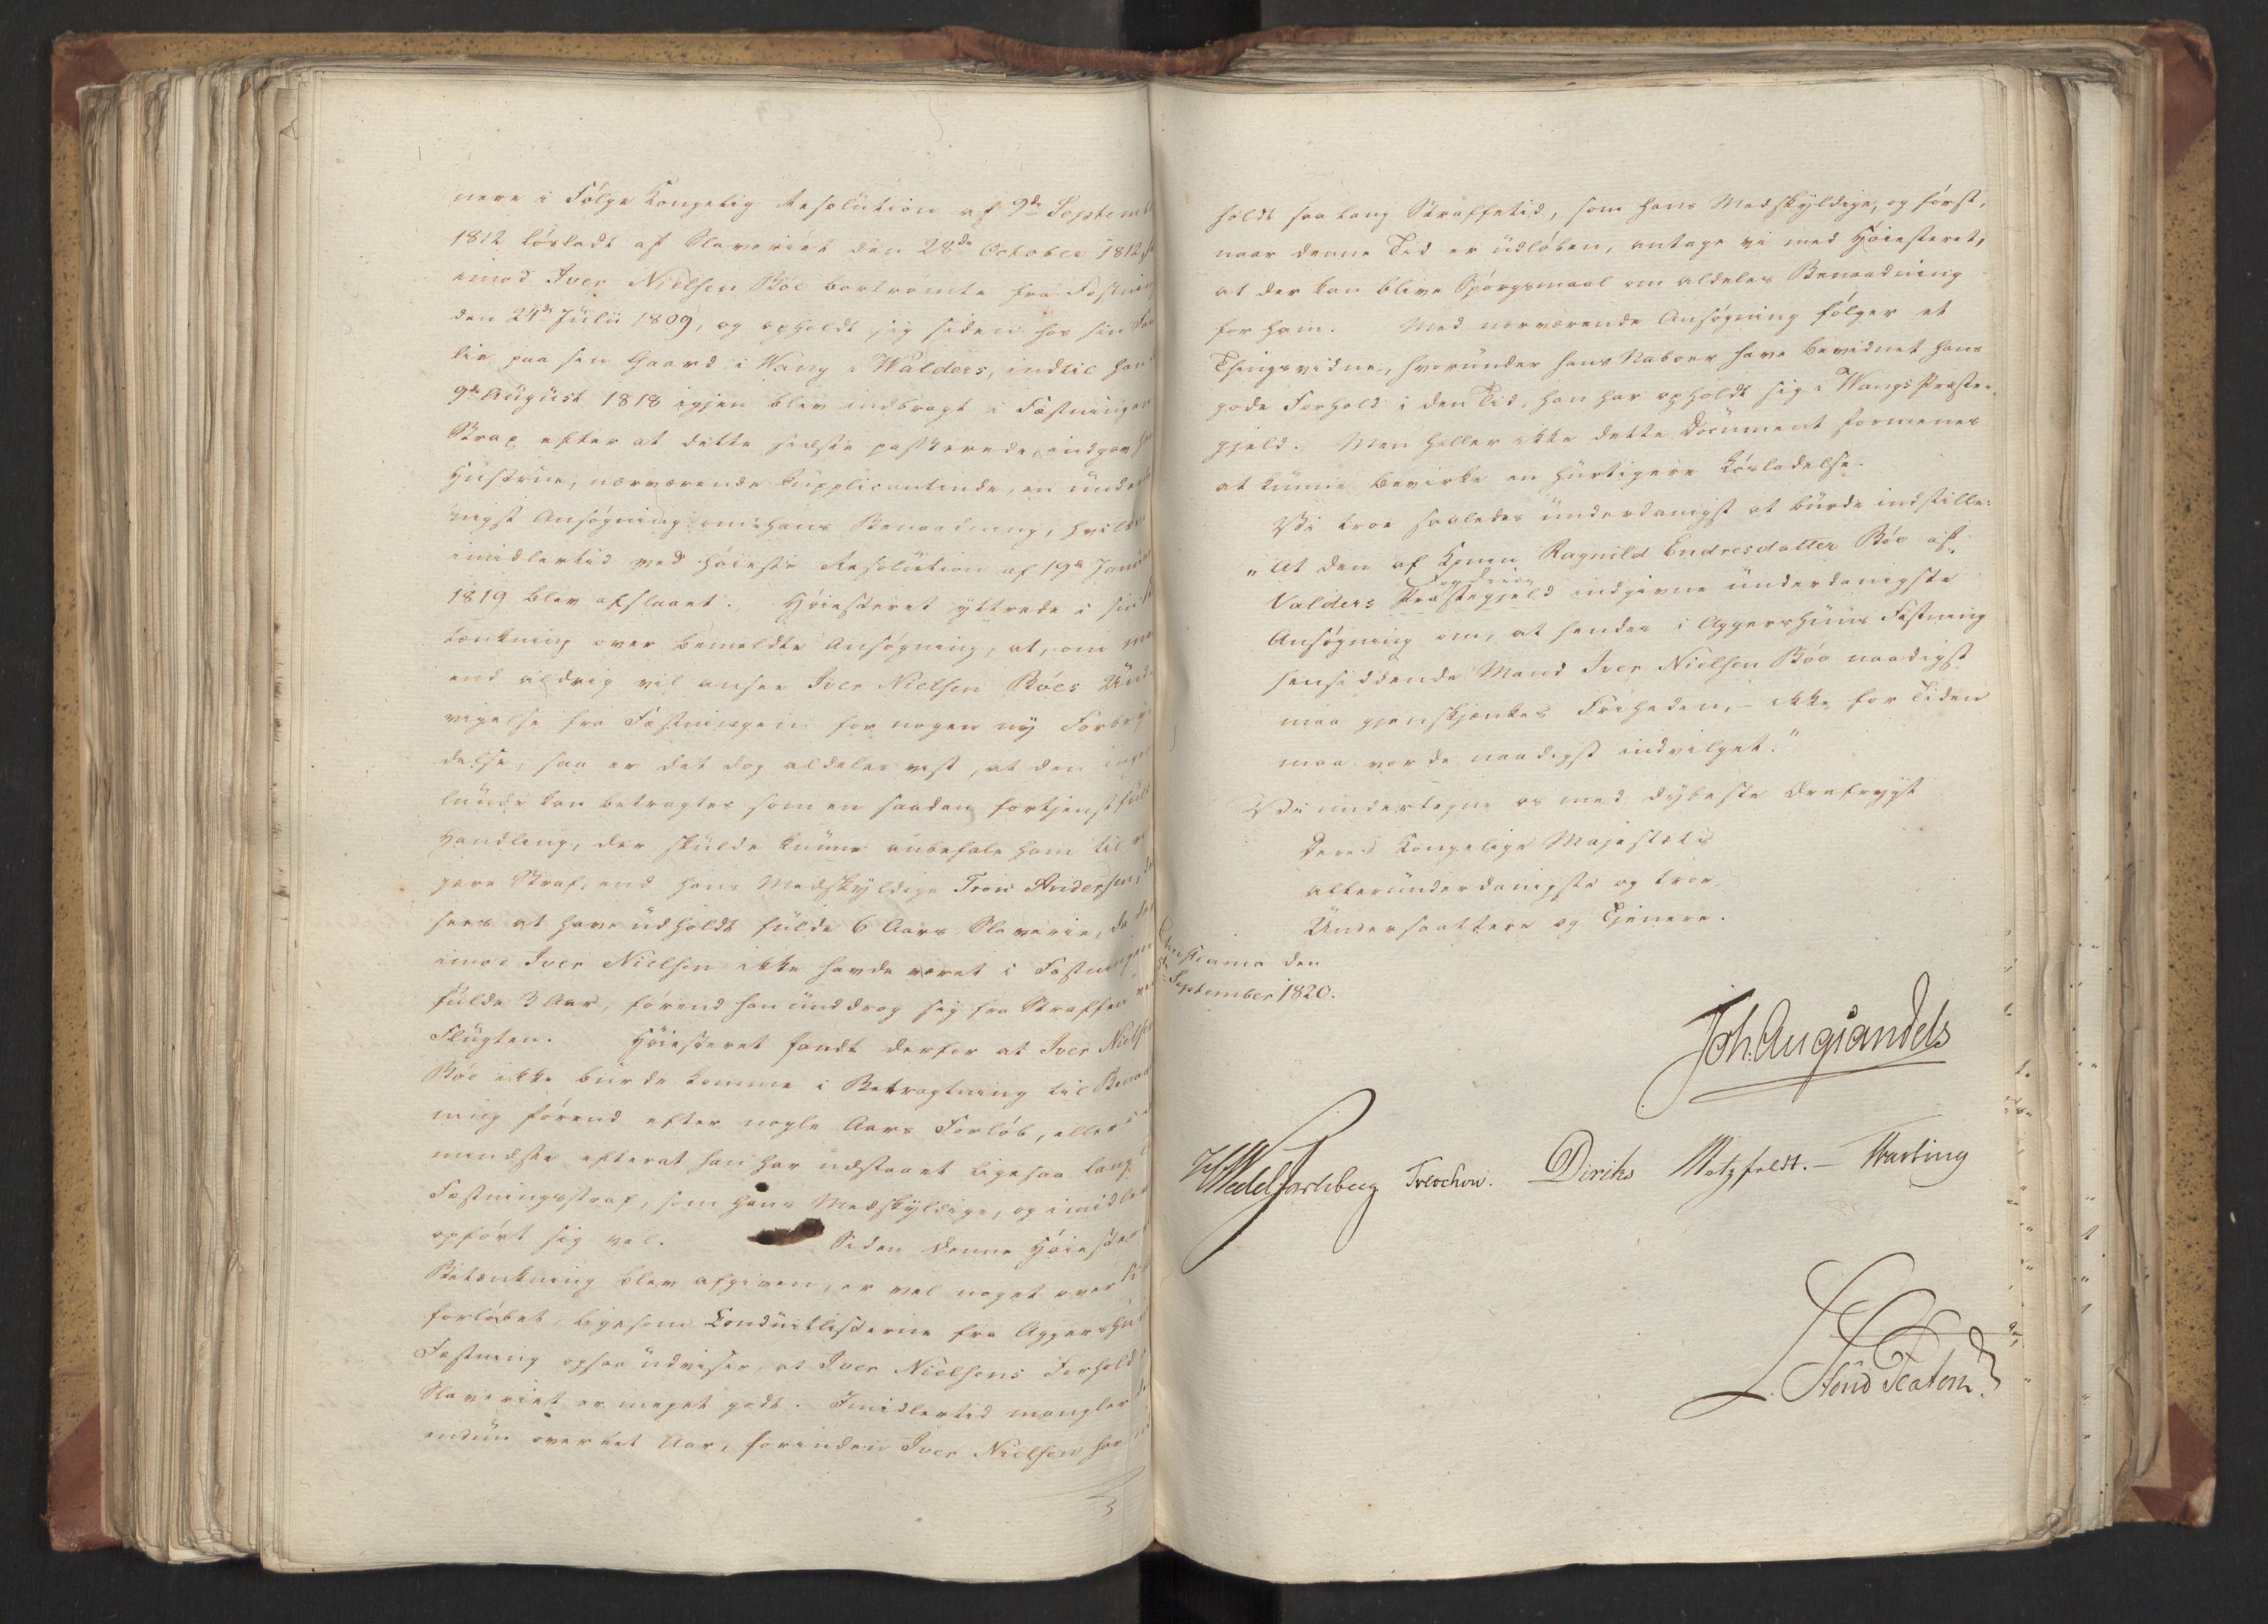 nere i Følge Kongelig Resolution af 9de Septemb
1812 løsladt af Slaveriet den 28de October 1812,
imod Iver Nielsen Böe bortrømte fra Fæstnin
den 24de Julii 1809, og opholdt sig siden hos sin Fam
lie paa sin Gaard i Wang i Walders, indtil han
9de August 1818 igjen blev indbragt i Fæstningen
Strax efter at dette sidste passerede, indgav
Hustrue, nærværende Supplicantinde, en under
nigst Ansøgning om hans Benaadning, hvilken
imidlertid ved høieste Resolution af 19de Janua
1819 blev afslaaet. Høiesteret yttrede i sin
tænkning over bemeldte Ansøgning, at, om man
end aldrig vil ansee Iver Nielsen Böes Und
vigelse fra Fæstningen for nogen ny Forbry
delse, saa er det dog aldeles vist, at den ingen
lunde kan betragtes som en saadan fortjenstfuld
Handling, der skulde kunne anbefale ham til
gere Straf, end hans Medskyldige Tron Andersen,
sees at have udholdt fulde 6 Aars Slaverie, da
imod Iver Nielsen ikke havde været i Fæstningen
fulde 3 Aar, førend han unddrog sig fra Straffen ved
Flugten. Høiesteret fandt derfor at Iver Niels
Böe ikke burde komme i Betragtning til Benaad
ning førend efter nogle Aars Forløb, eller i
mindste efterat han har udstaaet ligesaa lang
Fæstningsstraf, som hans Medskyldige, og imidler
opført sig vel. Siden denne Høiester
Betænkning blev afgiven, er vel noget over
forløbet, ligesom Conduitlisterne fra Aggershu
Fæstning ogsaa udviser, at Iver Nielsens Forhold
Slaveriet er meget godt. Imidlertid mangler
endnu over eet Aar, forinden Iver Nielsen har
holdt saa lang Straffetid, som hans Medskyldige, og først,
naar denne Tid er udløben, antage vi med Høiesteret,
at der kan blive Spørgsmaal om aldeles Benaadning
for ham. Med nærværende Ansøgning følger et
Thingsvidne, hvorunder hans Naboer have bevidnet hans
gode Forhold i den Tid, han har opholdt sig i Wangs Præste-
gjeld. Men heller ikke dette Document formenes
at kunne bevirke en hurtigere Løsladelse.
Vi troe saaledes underdanigst at burde indstille:
"At den af Konen Ragnild Endresdatter Böe af
Fogderie
Valders Præstegjeld indgivne underdanigste
Ansøgning om, at hendes i Aggershuus Fæstning
hensiddende Mand Iver Nielsen Böe naadigst
maa gjenskjænkes Friheden, - ikke for Tiden
maa vorde naadigst indvilget."
Vi undertegne os med dybeste Ærefrygt
Deres Kongelige Majestæts
allerunderdanigste og troe
Undersaattere og Tjenere.
Christiania den
September 1820.
Joh. Aug Sandels
HWedel Jarlsberg Treschow. Diriks Motzfeldt. - Fasting